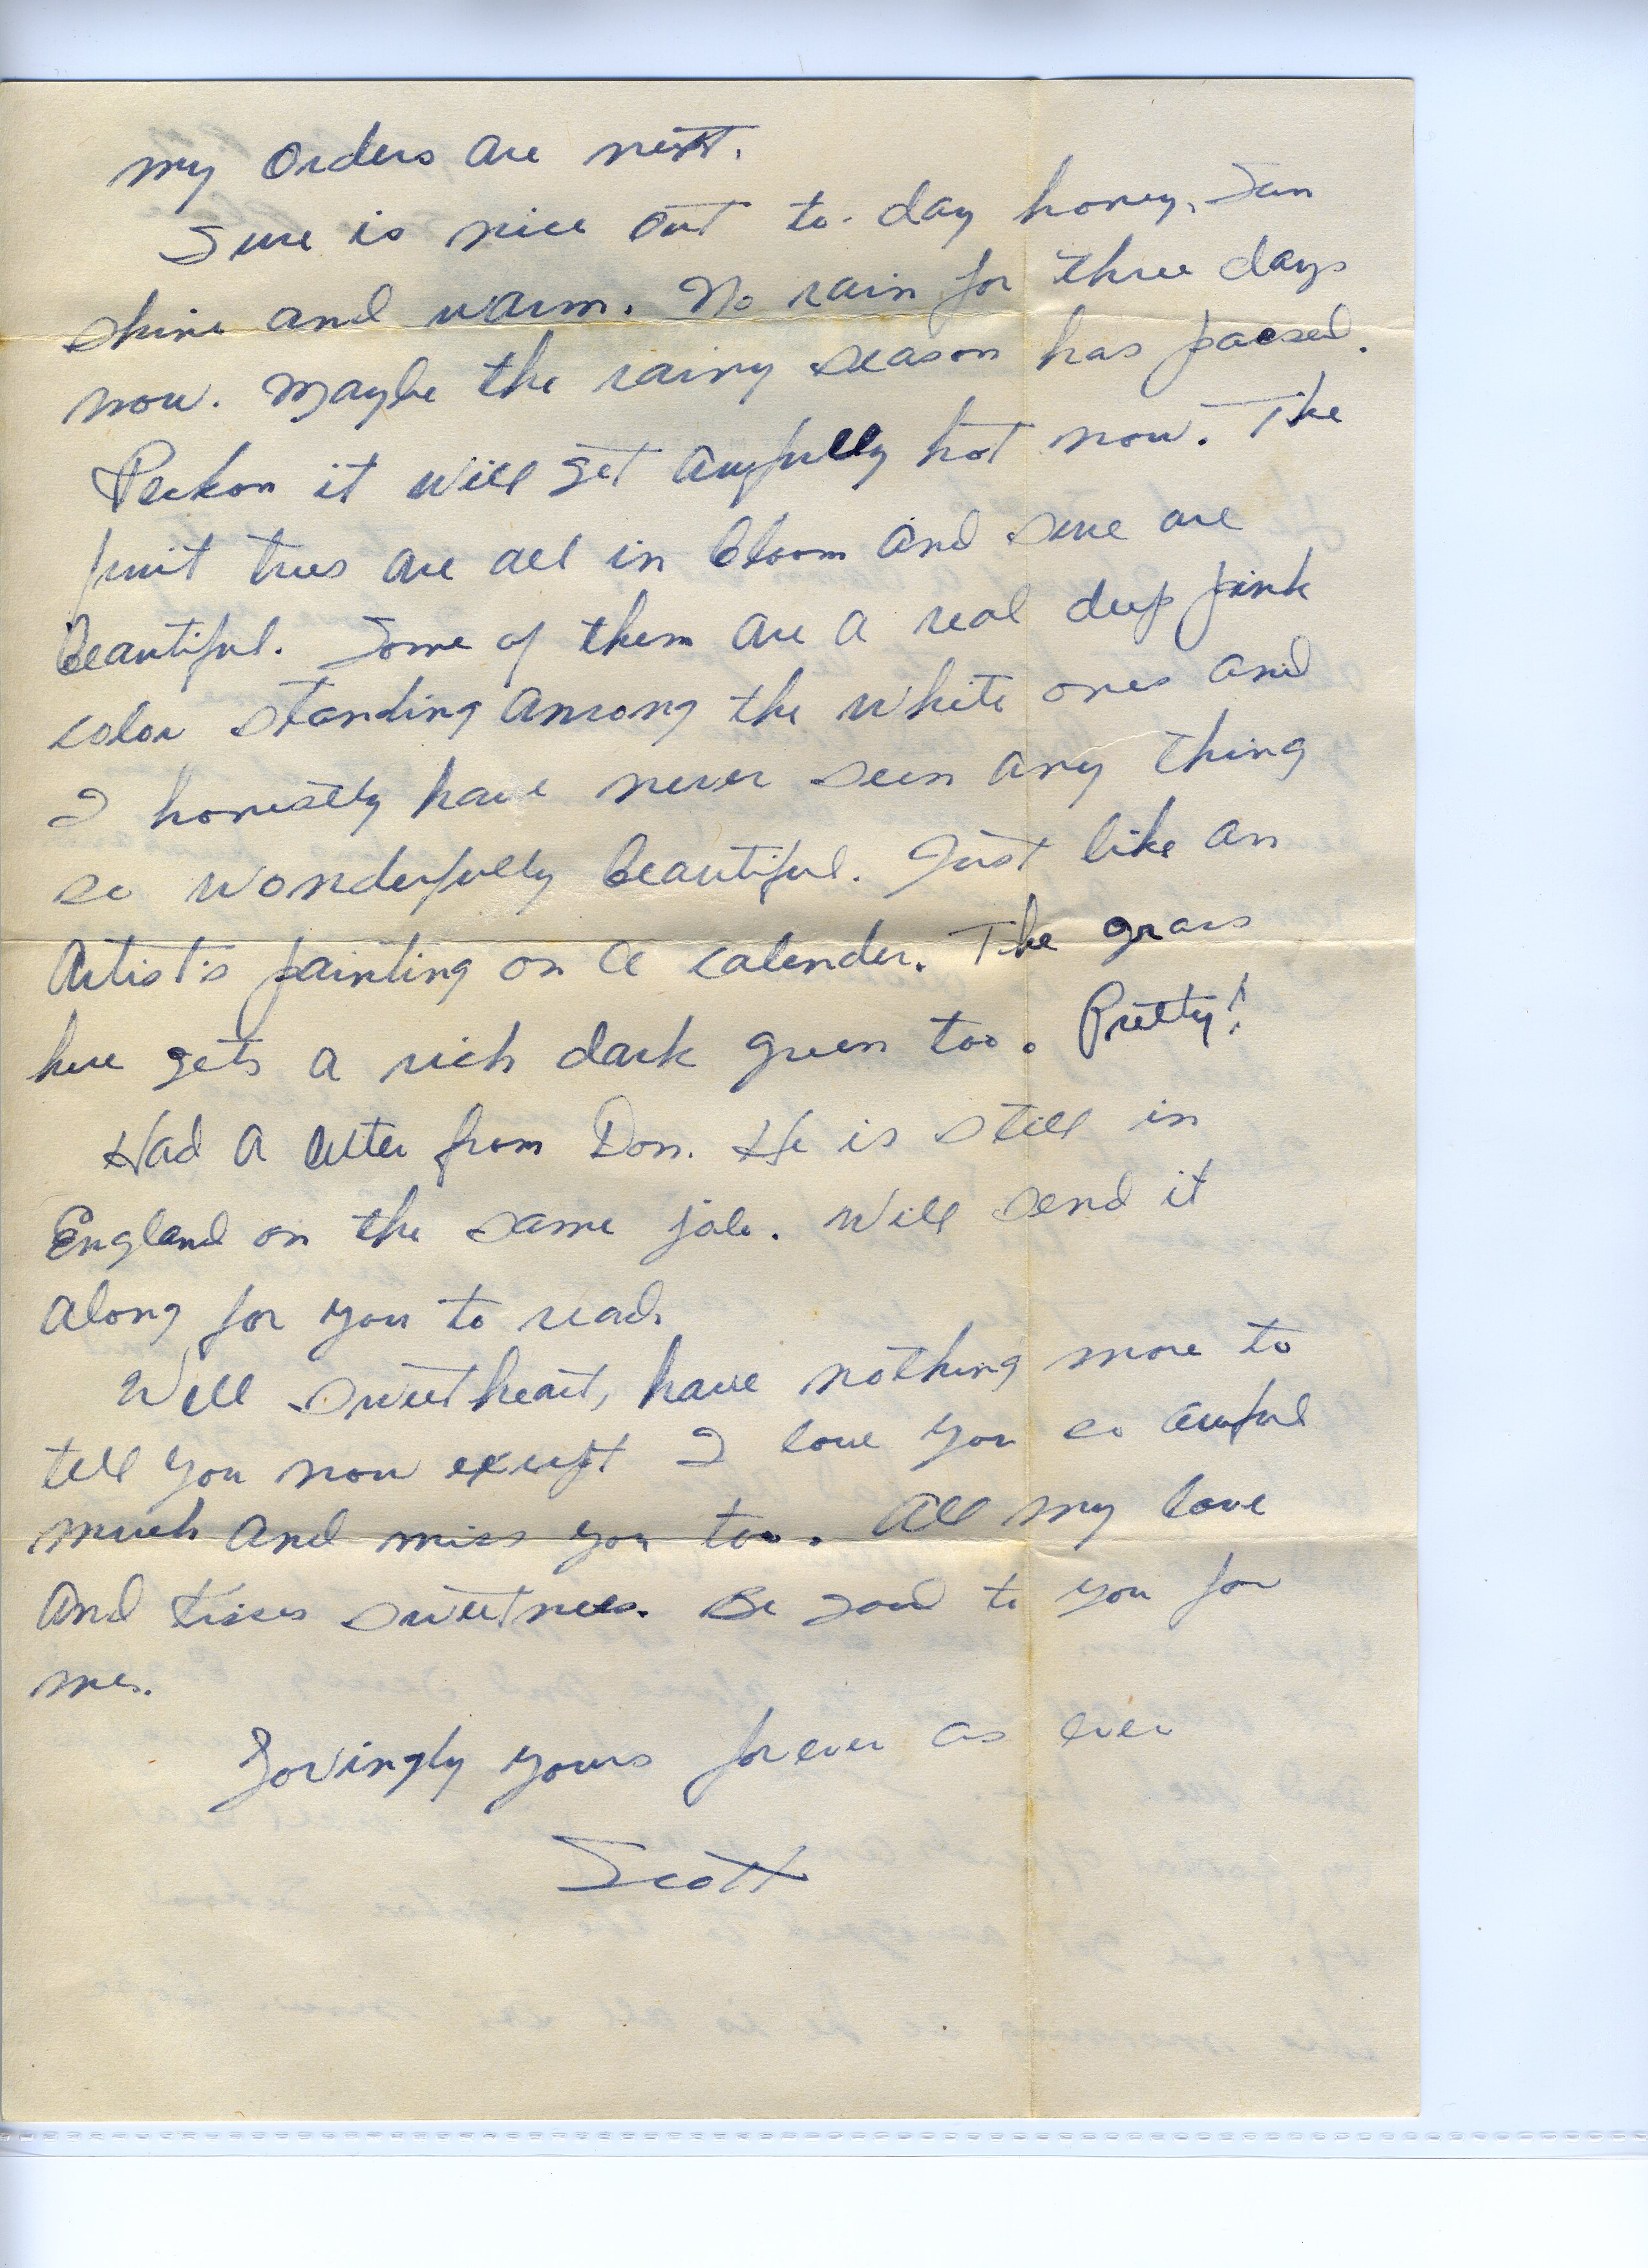 my orders are next.
Sure is nice out to-day honey, Sun
shine and warm. No rain for three days
now. Maybe the rainy season has passed.
Reckon it will get awfully hot now. The
fruit trees are all in bloom and sure are
beautiful. Some of them are a real deep pink
color standing among the white ones and
I honestly have never seen any thing
so wonderfully beautiful. Just like an
Artist's painting on a calender. The grass
here gets a rich dark green too. Pretty!
Had a letter from Don. He is still in
England on the same job. Will send it
along for you to read.
Well sweetheart, have nothing more to
tell you now except I love you so awful
much and miss you too. All my love
and kisses sweetness. Be good to you for
me.
Lovingly yours forever as ever
Scott